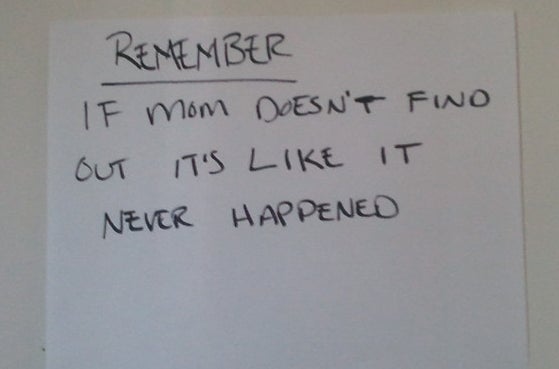 REMEMBER
IF MOM DOESN'T FIND
OUT IT'S LIKE IT
NEVER HAPPENED